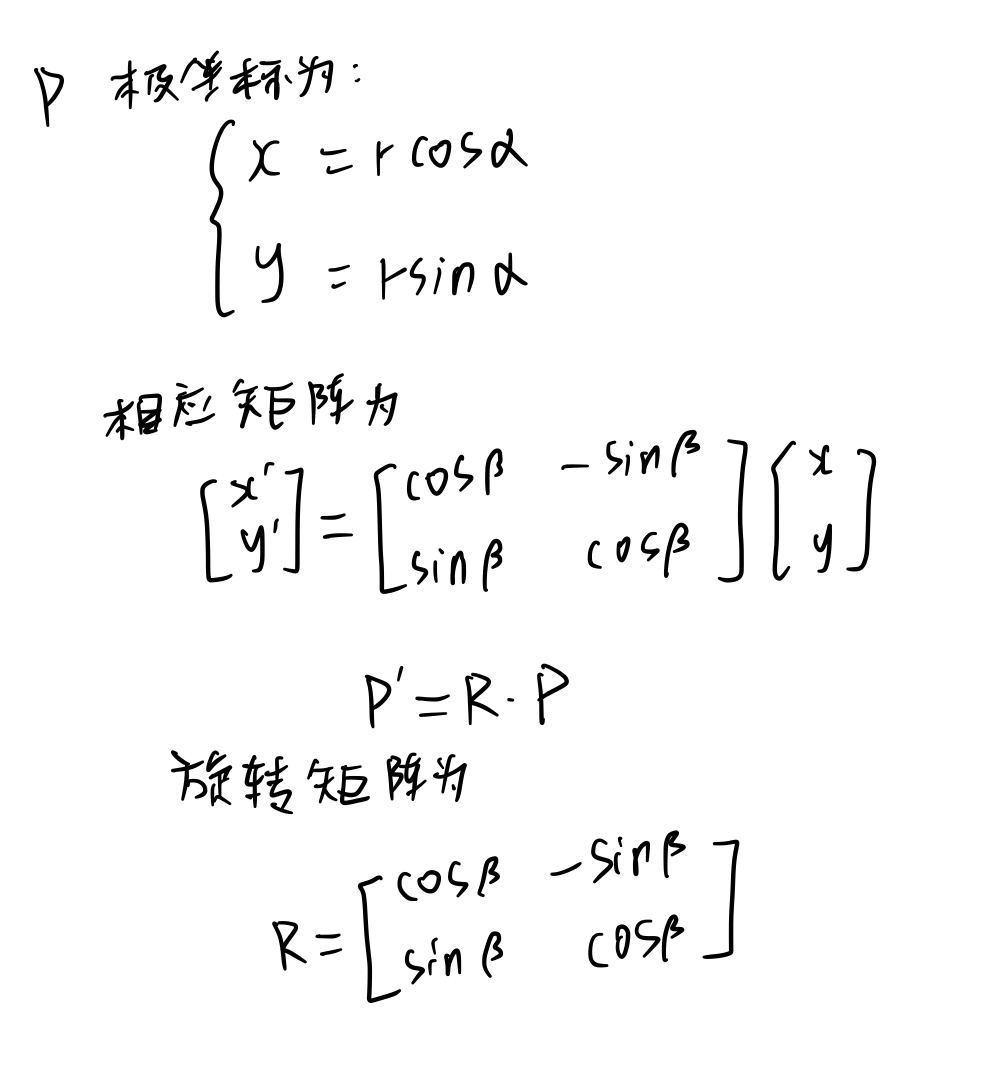 P 极坐标为:
x = r cosα
y = r sinα
相应矩阵为
[x' y'] = [cosβ -sinβ sinβ cosβ] [x y]
P' = R · P
旋转矩阵为
R = [cosβ -sinβ sinβ cosβ]